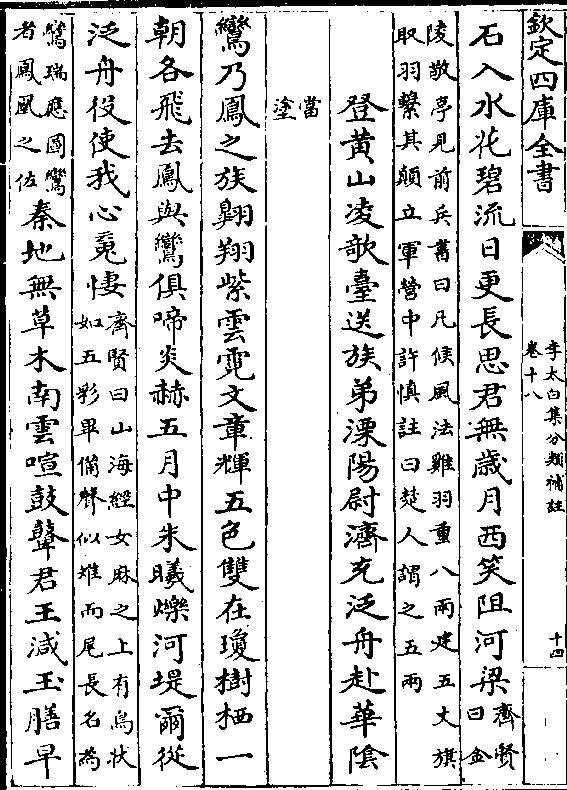 欽定四庫全書
李太白集分類補註
卷十八
十四
石入水花碧流日更長思君無歳月西笑阻河梁
齊賢
曰金
陵敬亭見前兵書曰凡候風法雞羽重八兩建五丈旗
取羽繫其顛立軍營中許慎註曰楚人謂之五兩
登黄山凌歌臺送族弟溧陽尉濟充泛舟赴華陰
當
塗
鸞乃鳳之族翱翔紫雲霓文章輝五色雙在瓊樹栖一
朝各飛去鳳與鸞俱啼炎赫五月中朱曦爍河堤爾從
泛舟役使我心䰟悽
齊賢曰山海經女麻之上有鳥状
如五彩畢備聲似雉而尾長名為
鸞瑞應圖鸞
者鳳凰之佐
秦地無草木南雲喧鼓鼙君王减玉膳早